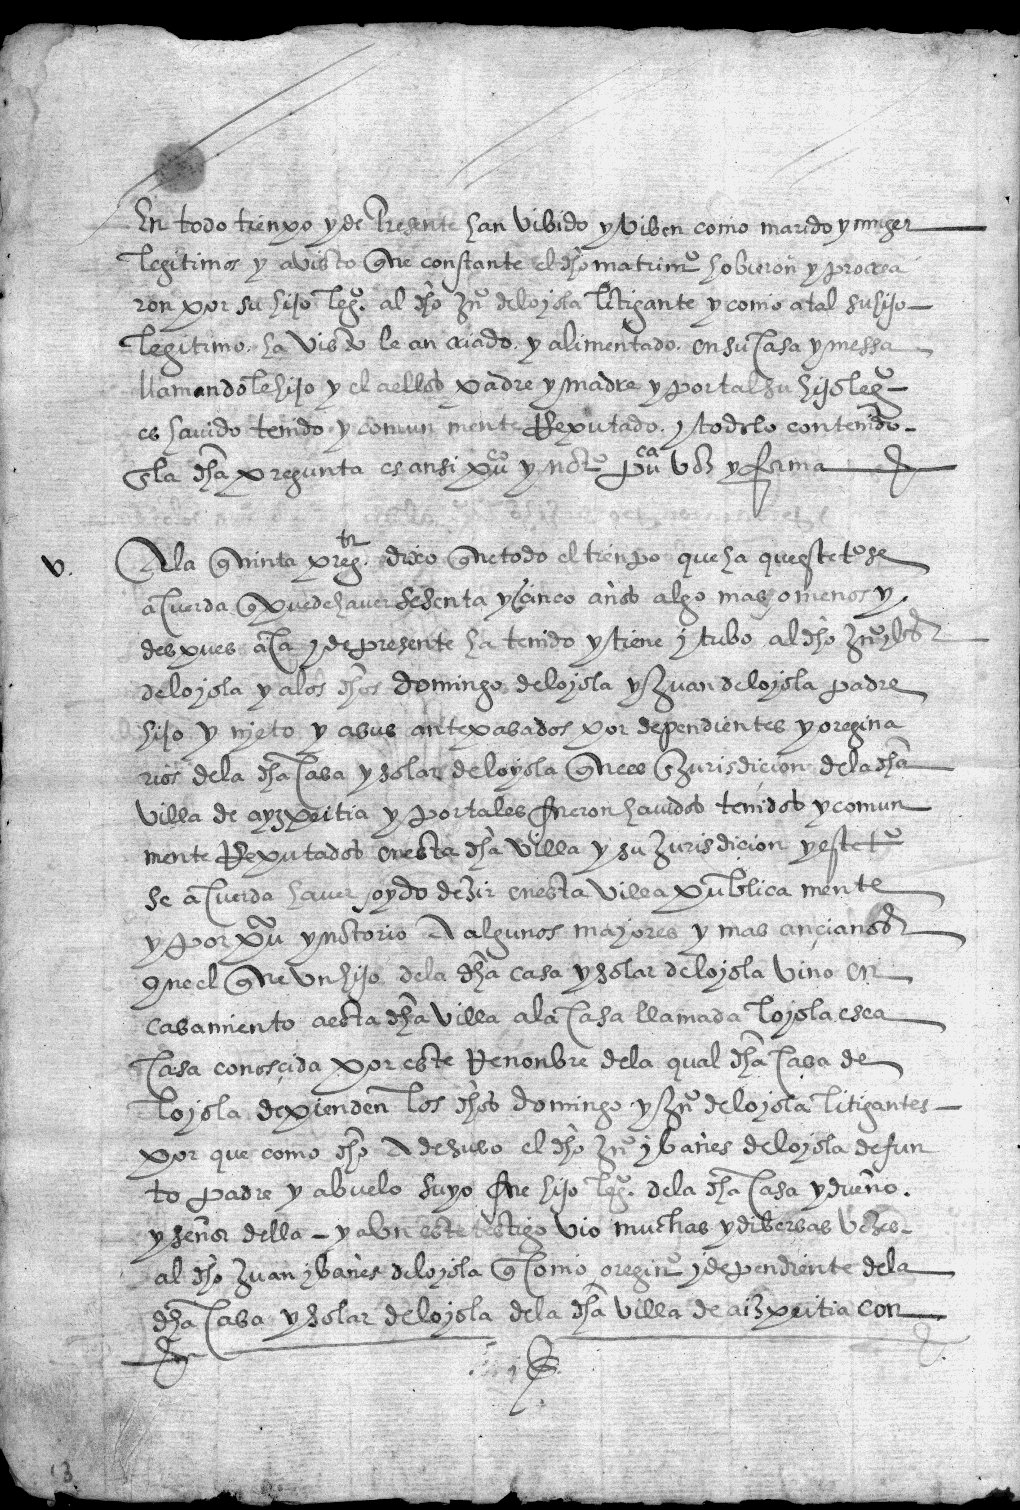 En todo tienpo y de Presente han vibido y viben como marido y muger
legitimos y a visto que constante el dho matrimº hobieron y procrea
ron por su hijo legº. al dho Juº de loyola litigante y como a tal su hijo
legitimo. ha visto le an criado. y alimentado. en su casa y messa
llamandole hijo y el a ellos padre y madre y por tal su hijo legº
es havido tenido y comun mente Reputado. y todo lo contenido
en la dha pregunta es ansi puco y notº puca voz y fama
v. A la quinta preg. dixo que todo el tienpo que ha que este tº se
acuerda q puede haver sesenta y cinco años algo mas o menos y
despues aca y de presente ha tenido y tiene y tubo al dho Juº
de loyola y a los dhos domingo de loyola y Juan de loyola padre
hijo y nieto y a sus antepasados por dependientes y oregina
rios de la dha Casa y solar de loyola que es en Jurisdicion de la dha
villa de ayzpeitia y por tales fueron havidos tenidos y comun
mente Reputados en esta dha villa y su Jurisdiçion y este tº
se acuerda haver oydo dezir en esta villa publica mente
y por puco y notorio A algunos mayores y mas ançianos
que el que un hijo de la dha casa y solar de loyola vino en
casamiento a esta dha villa a la Casa llamada loyola
Casa conosçida por este Renonbre de la qual dha Casa de
loyola depienden los dhos domingo y Juº de loyola litigantes
por que como dho A de suso el dho Juº ybañes de loyola defun
to padre y abuelo suyo fue hijo legº. de la dha Casa y dueño.
y señor della - y a un este testigo vio muchas y diversas vezes
al dho Juan ybañes de loyola q como oreginº y dependiente de la
dha Casa y solar de loyola de la dha villa de aizpeitia con